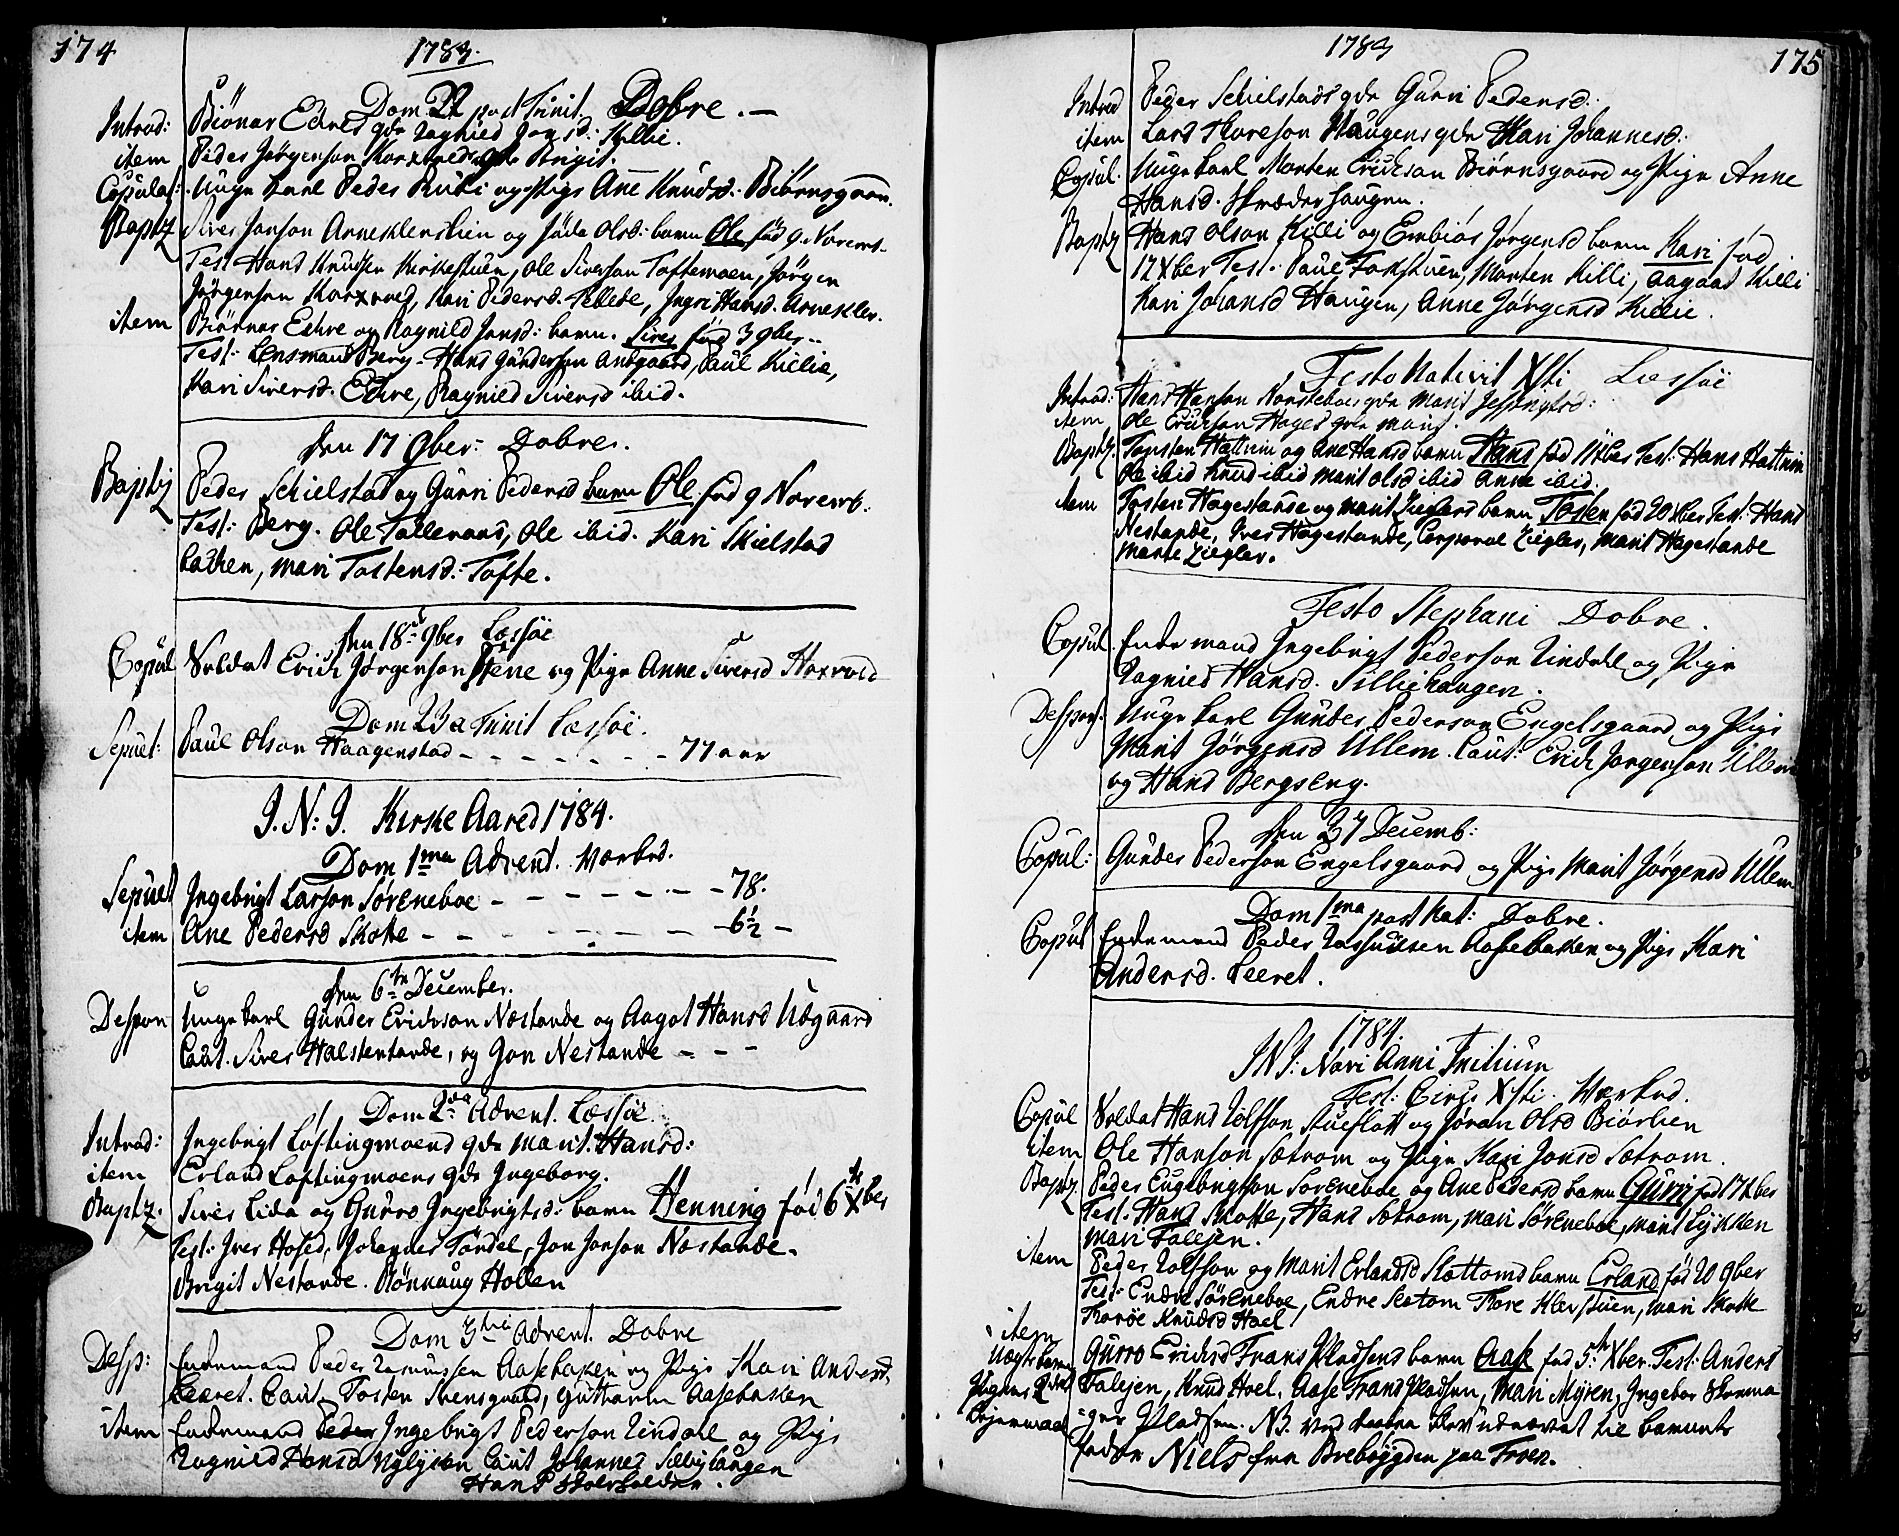 174
1783.
Dom 22 post Trinit. Dobre. —
Introd: Biönar Echres qde Ragnild Jonsd: Killie.
item Peder Jörgenson Korxved qde Brigit.
Copulat: Unge Karl Peder Rusti og Pige Ane Knudsd. Biörnsgaard.
Baptz Siver Jonson Arneklevslien og Olsd: barn Ole föd 9 Novemb.
Test Hans Knudsen Kirkestuen, Ole Siverson Toftemoen, Jörgen
Jörgenson Korxved, Kari Pedersd. Tellede, Ingri Hansd. Arneklev.
item Biörnar Echre og Ragnild Jonsd: barn. Siver föd 3 9ber..
Test: Lensmand Berg. Hans Gunderson Andgaard, Paul Killie,
Kari Siversd. Echre, Ragnild Siversd ibid.
den 17 9ber: Dobre.
Baptz Peder Schielstad og Gurri Pedersd barn Ole föd 9 Novemb:
Test: Berg. Ole Tallerаas, Ole ibid. Kari Skielstad
backen, Mari Tostensd: Tofte.
den 18de 9ber Lessöe
Copul Soldat Erich Jörgenson Stene og Pige Anne Siversd Horvold
Dom 23 a Trinit Lessöe.
Sepult: Paul Olson Haagenstad - - - - - - - 77 aar
J. N: J. Kirke Aared 1784.
Dom 1ma Advent. Værbod.
Sepult Ingebrigt Larson Söreneboe - - - - - - 78.
item Ane Pedersd Skotte - - - - - - - - 6½ -
den 6te December.
Despon Unge Karl Gunder Erichson Nestande og Aagot Hansd Udgaard
Caut. Siver Halstenstande, og Jon Nestande - - -
Dom 2da Advent. Lessöe.
Introd: Ingebrigt Löftingmoens qde Marit Hansd:
item Erland Löftingmoens qde Ingeborg.
Baptz. Siver Lida og Gurro Ingebrigtsd: barn Henning föd 6te Xber
Test: Iver Hosed, Johannes Tördel, Jon Jonson Nestande.
Brigit Nestande. Rönnaug Hollen
Dom 3tia Advent. Dobre
Desp: Enkemand Peder Rasmussen Aasebakken og Pige Kari Andersd.
Leeret. Caut. Tosten Svensgaard, Guttorm Aasebakken
item Enkemand Peder Ingebrigt Pederson Lindahl og Pige
Ragnild Hansd Nylykken Caut Johannes Sillihaugen
Hans P. Skoleholder.
1783
175
Introd Peder Schielstads qde Gurri Pedersd:
item Lars Thoreson Haugens qde Kari Johannesd:
Copul. Unge Karl Morten Erichson Biörnsgaard og Pige Anne
Hansd. Skrederhaugen.
Baptz Hans Olson Killi og Embiör Jörgensd barn Kari föd
12 Xber Test: Paul Fokstuen, Morten Killi, Aagaat Killi
Kari Johansd Haugen, Anne Jörgensd Killie.
Festo Nativit Xsti Lessöe
Introd: Hans Hanson Norsteboes qde Marit
item Ole Erichson Hages qde Marit.
Baptz. Torsten Hattrem og Ane Hansd barn Hans föd 11 Xber Test: Hans Hattrem
Ole ibid Knud ibid Marit Olsd ibid Anne ibid.
item Tosten Hagestande og Marit Zieglers barn Tosten föd 20 Xber Test: Hans
Nestande, Iver Hagestande, Corporal Ziegler, Marit Hagestande
Marte Ziegler.
Festo Stephani Dobre.
Copul. Enke mand Ingebrigt Pederson Lindahl og Pige
Ragnild Hansd. Silliehaugen.
Despons. Unge Karl Gunder Pederson Engelsgaard og Pige
Marit Jörgensd Ullem. Caut: Erich Jörgenson Ullem
og Hans Bergseng.
den 31 Decemb:
Copul: Gunder Pederson Engelsgaard og Pige Marit Jörgensd Ullem
Dom 1ma post Nat: Dobre.
Copul Enkemand Peder Rasmussen Aasebakken og Pige Kari
Andersd. Leeret.
1784.
J N J: Novi Anni Initium
Fest: Circ: Xsti. Værbod.
Copul Soldat Hans Rolfson Stueflott og Jöran Olsd Biörlien
item Ole Hanson Setrom og Pige Kari Jonsd Setrom.
Baptz. Peder Engebrigtson Söreneboe og Ane Pedersd barn Gurri föd 17 Xber
Test. Hans Skotte, Hans Setrom, Mari Söreneboe, Marit Lykken
Mari Falejen.
item Peder Rolfson og Marit Erlandsd Slottoms barn Erland föd 20 9ber
Test: Endre Sörenboe, Endre Slotom Thore Klevstuen, Mari Skotte
Thoröe Knudsd Hoel
item Gurro Erichsd Frans Pladsens barn Aase föd 5te Xber. Test: Anders
Uægte barn Falejen, Knud Hoel, Aase Frans Pladsen, Mari Myren, Ingebor
Pigens 2det ger Pladsen. NB. Ved daaben blev udnævnt til barnets
Leiermaal fader Niels fra Brebygden paa Froen.